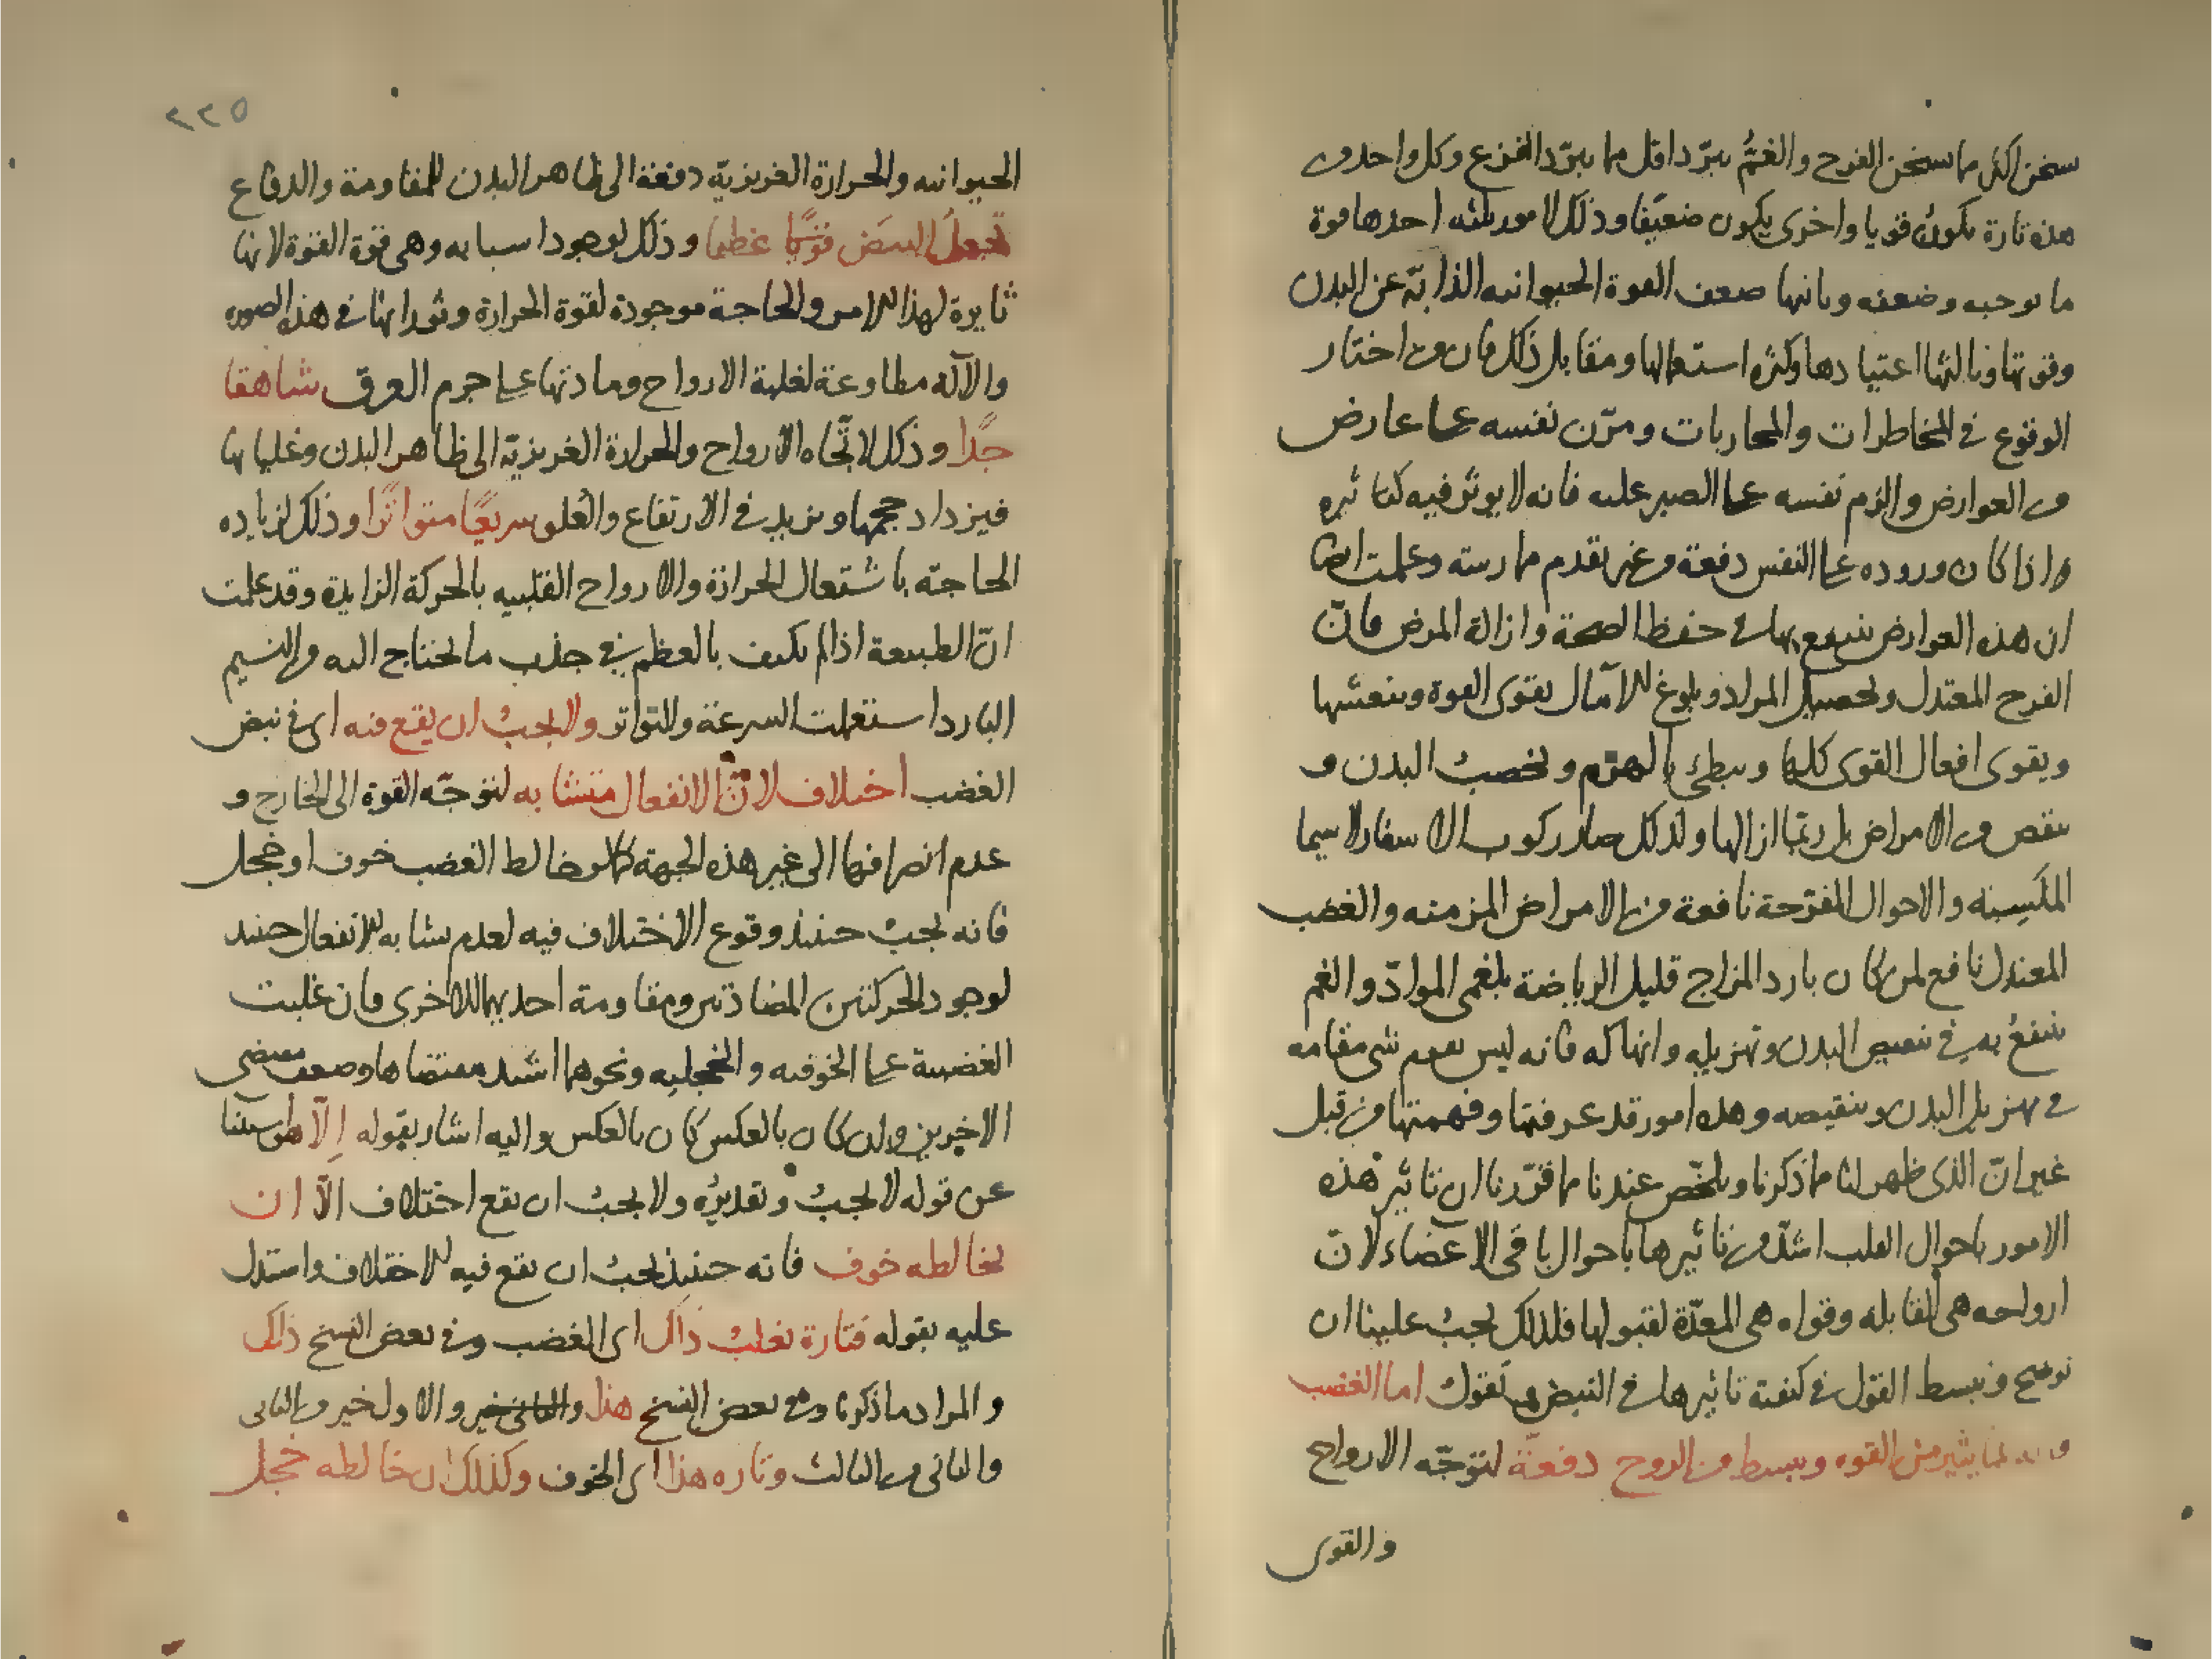 سخن اكثر مما سخن الفرح والغمُّ يبرّد اقل مما يبرّد الفزع وكل واحد من
هذه تارة يكون قويا واخرى يكون ضعيفا وذلك لامور ثلثه احدها قوة
ما توجبه وضعفه وثانيها ضعف القوة الحيوانيه الذابّة عن البدن
وقوتها وثالثها اعتيادها وكثرة استعمالها ومقابل ذلك فان من اختار
الوقوع في المخاطرات والمحاربات ومرّن نفسه على عارض
من العوارض والزم نفسه على الصبر عليه فانه لا يوثر فيه كتاثيره
اذا كان وروده على النفس دفعة من غير تقدم ممارسته وعلمت ايضا
ان هذه العوارض ينتفع بها في حفظ الصحة وازالة المرض فانّ
الفرح المعتدل وتحصيل المراد وبلوغ الآمال يقوى القوة وينعشها
ويقوى افعال القوى كلها ويبطئ بالهرم ويخصب البدن و
ينقص من الامراض بل ربّما ازالها ولذلك صار ركوب الاسفار لا سيما
والاحوال المفرّحة نافعة من الامراض المزمنه والغضب
المعتدل نافع لمن كان بارد المزاج قليل الرياضة بلغمى الموادّ والغم
ينتفعُ به في تنقيص البدن وتهزيله وانهاكه فانه ليس يقوم شى مقامه
في تهزيل البدن وتنقيصه وهذه امور قد عرفتها وفهمتها من قبل
غير انّ الذى ظهر لنا مما ذكرنا وتلخّص عندنا مما قرّرنا ان تاثير هذه
الامور باحوال القلب اشدّ من تاثيرها باحوال باقى الاعضاء لانّ
ارواحه هى القابله وقواه هى المعدّة لقبولها فلذلك يجب علينا ان
نوضح ونبسط القول في كيفية تاثيرها في النبض فنقول اما الغضب
يثير من القوه ويبسط من الروح دفعةً لتوجّه الارواح
والقوى
٢٢٥
الحيوانيه والحرارة الغريزيّة دفعة الى ظاهر البدن للمقاومة والدفاع
تجعلُ النبض قويًّا عظيما وذلك لوجود اسبابه وهى قوة القوة لانها
ثايرة لهذا الامر والحاجة موجودة لقوة الحرارة وثورانها في هذه الصوره
والآله مطاوعة لغلبة الارواح ومادتها على جرم العرق شاهقا
جدًّا وذلك لاتّجاه الارواح والحرارة الغريزيّة الى ظاهر البدن وغليانها
فيزداد حجمها ويزيد في الارتفاع والعُلو سريعًا متواترًا وذلك لزياده
الحاجة باشتعال الحرارة والارواح القلبيه بالحركة الزايدة وقد علمت
انّ الطبيعة اذا لم تكتف بالعظم في جذب ما تحتاج اليه من النسيم
البارد استعملت السرعة والتواتر ولا يجبُ ان يقع فيه اى في نبض
الغضب اختلاف لانّ الانفعال متشابه لتوجّه القوة الى الخارج و
عدم انصرافها الى غير هذه الجهة كما لو خالط الغضب خوف او خجل
فانه يجب حينئذ وقوع الاختلاف فيه لعدم تشابه الانفعال حينئذ
لوجود الحركتين المضادّتين ومقاومة احديهما للاخرى فان غلبت
الغضبية على الخوفيه والخجليه ونحوهما اشتد مقتضاها وضعف مقتضى
الاخيرين وان كان بالعكس كان بالعكس واليه اشار بقوله الّا استثنا
عن قوله لا يجب وتقديرُه ولا يجب ان يقع اختلاف الّا ان
يخالطه خوف فانه حينئذ يجب ان يقع فيه الاختلاف واستدل
عليه بقوله فتارة يغلب ذاك اى الغضب وفي بعض النسخ ذلك
والمراد ما ذكرنا وفي بعض النسخ هذا والاول خير من الثانى
والثانى من الثالث وتاره هذا اى الخوف وكذلك ان خالطه خجل